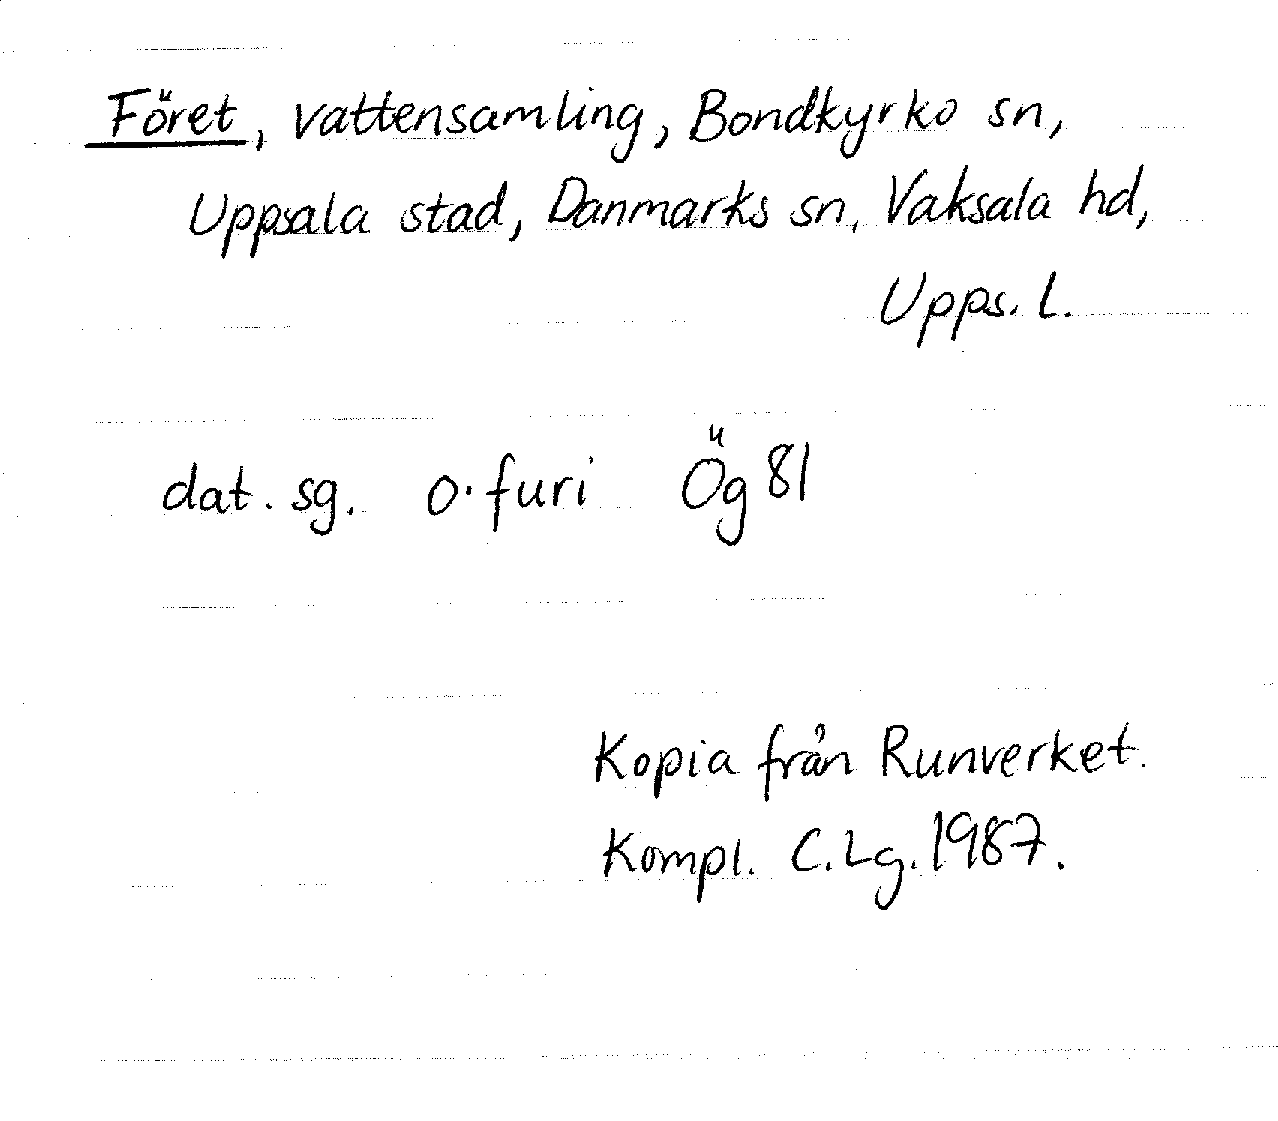 Föret, vattensamling, Bondkyrko sn,
Uppsala stad, Danmarks sn, Vaksala hd,
Upps. l.
dat. sg. o·furi Ög 81
Kopia från Runverket.
Kompl. C.Lg. 1987.